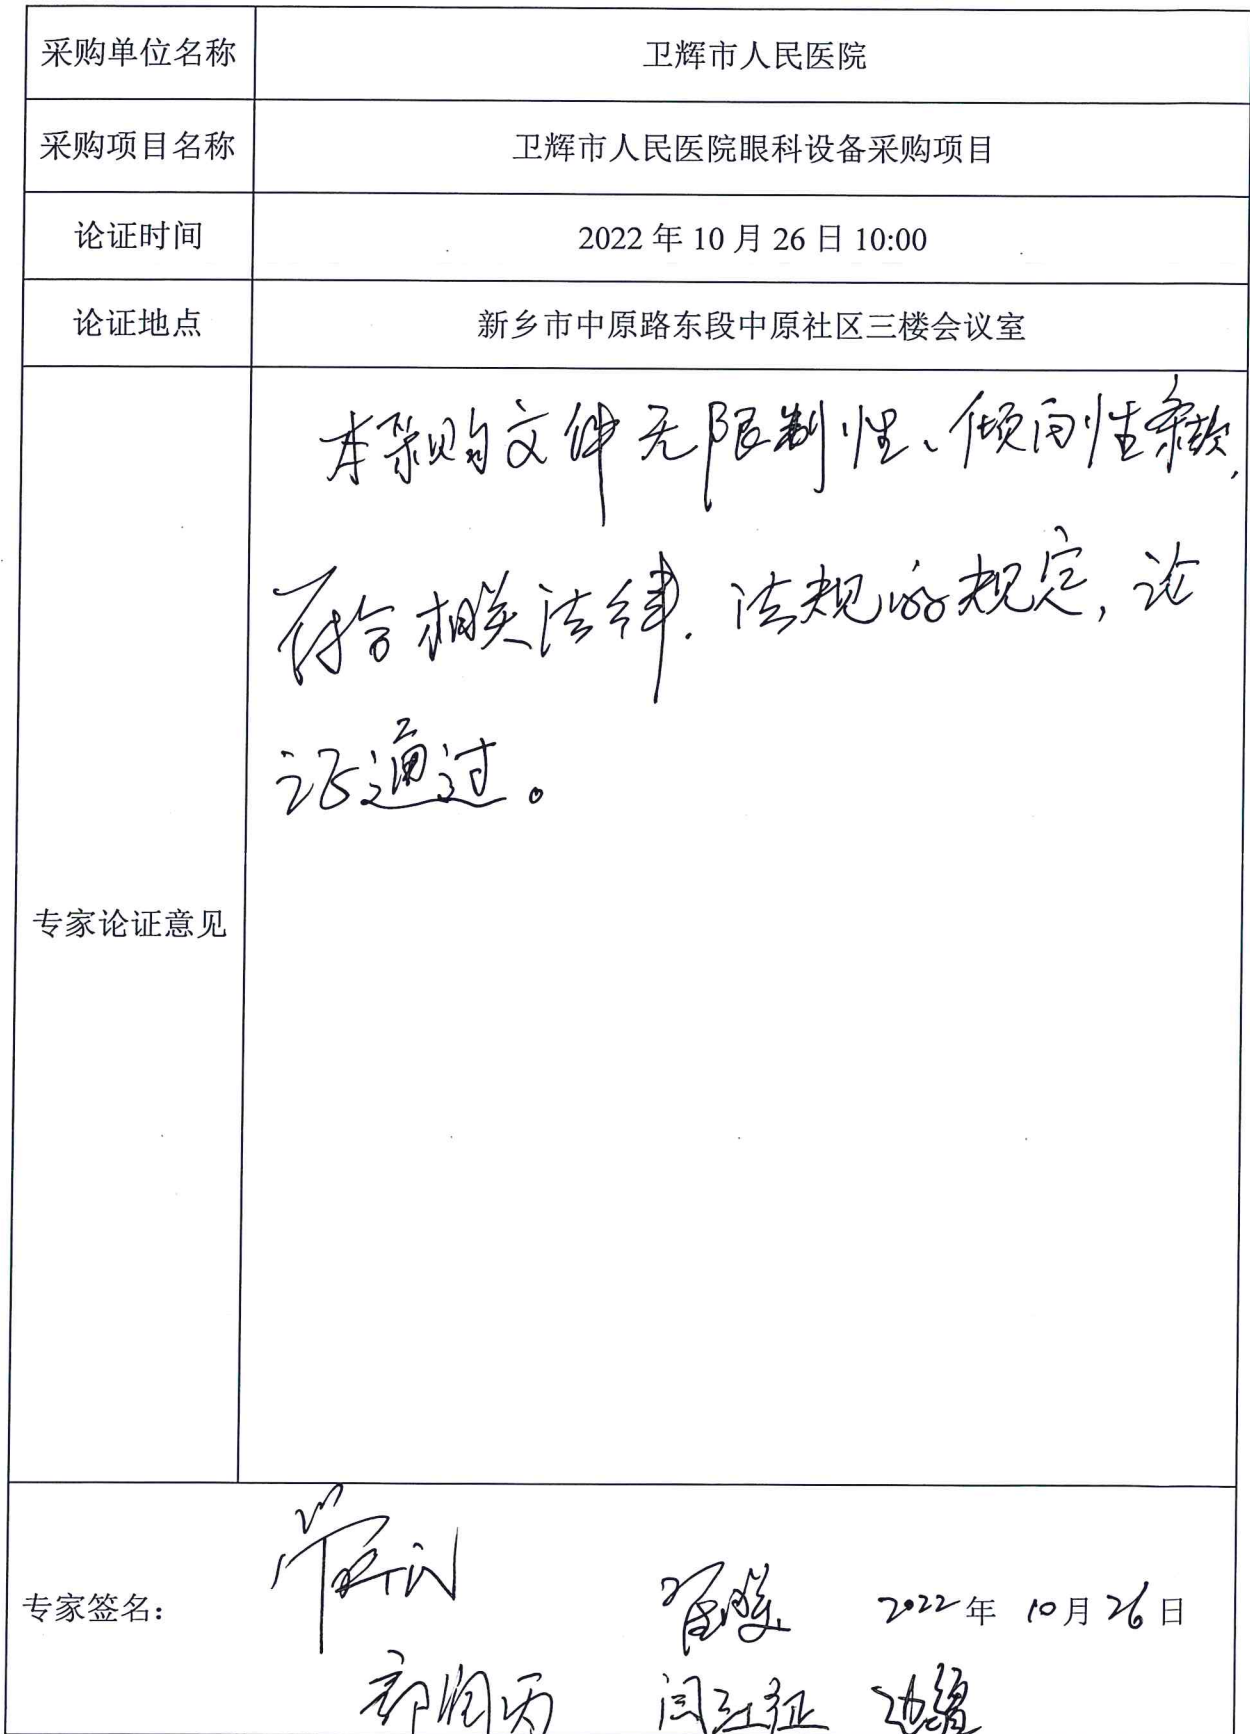 采购单位名称 卫辉市人民医院
采购项目名称 卫辉市人民医院眼科设备采购项目
论证时间 2022年10月26日10:00
论证地点 新乡市中原路东段中原社区三楼会议室
专家论证意见
本采购文件无限制性、倾向性条款,
符合相关法律、法规的规定,论
证通过。
专家签名: 2022年10月26日
闫红征